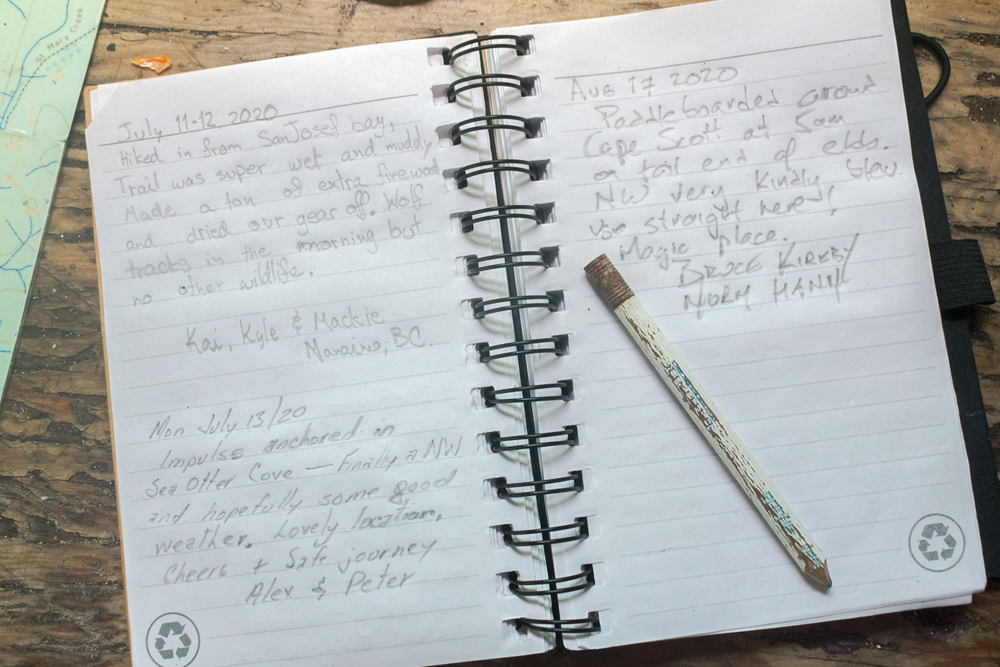 St. Mary Creek
July 11-12, 2020
Hiked in from SanJosef bay.
Trail was super wet and muddy
Made a ton of extra firewood
and dried our gear off. Wolf
tracks in the morning but
no other wildlife.
Kai, Kyle & Mackie
BC.
Mon July 13/20
Impulse anchored in
Sea Otter Cove — Finally a NW
and hopefully some good
weather. Lovely location.
Cheers + Safe journey
Alex & Peter
Aug 17 2020
Paddleboarded around
Cape Scott at 5am
on tail end of ebb.
NW very kindly blew
us straight here!
Magic place.
BRUCE KIRKBY
NORM HANN